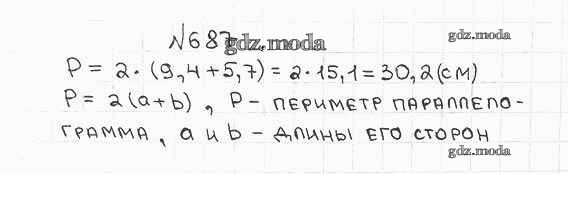 №687 gdz.moda
gdz.moda
P = 2·(9,4+5,7) = 2·15,1 = 30,2 (см)
P = 2(a+b), P - ПЕРИМЕТР ПАРАЛЛЕЛО-
ГРАММА, a и b - ДЛИНЫ ЕГО СТОРОН
gdz.moda